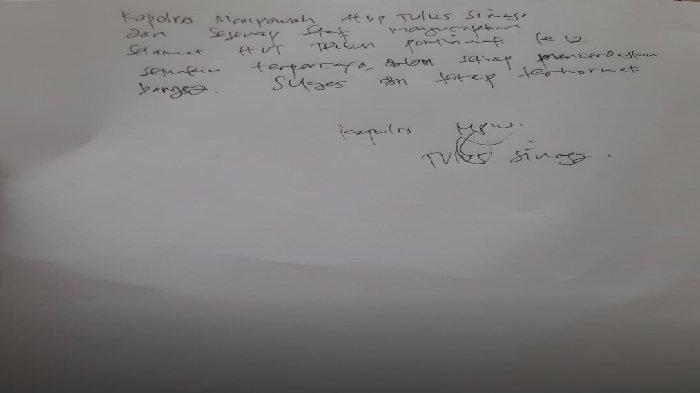 Kapolres Mempawah AKBP Tulus Sinaga
dan segenap Staf mengucapkan
Selamat HUT Tribun Pontianak ke
semakin terpercaya dalam setiap mencerdaskan
bangsa. Sukses dan tetap terhormat
Kapolres
Tulus Sinaga.